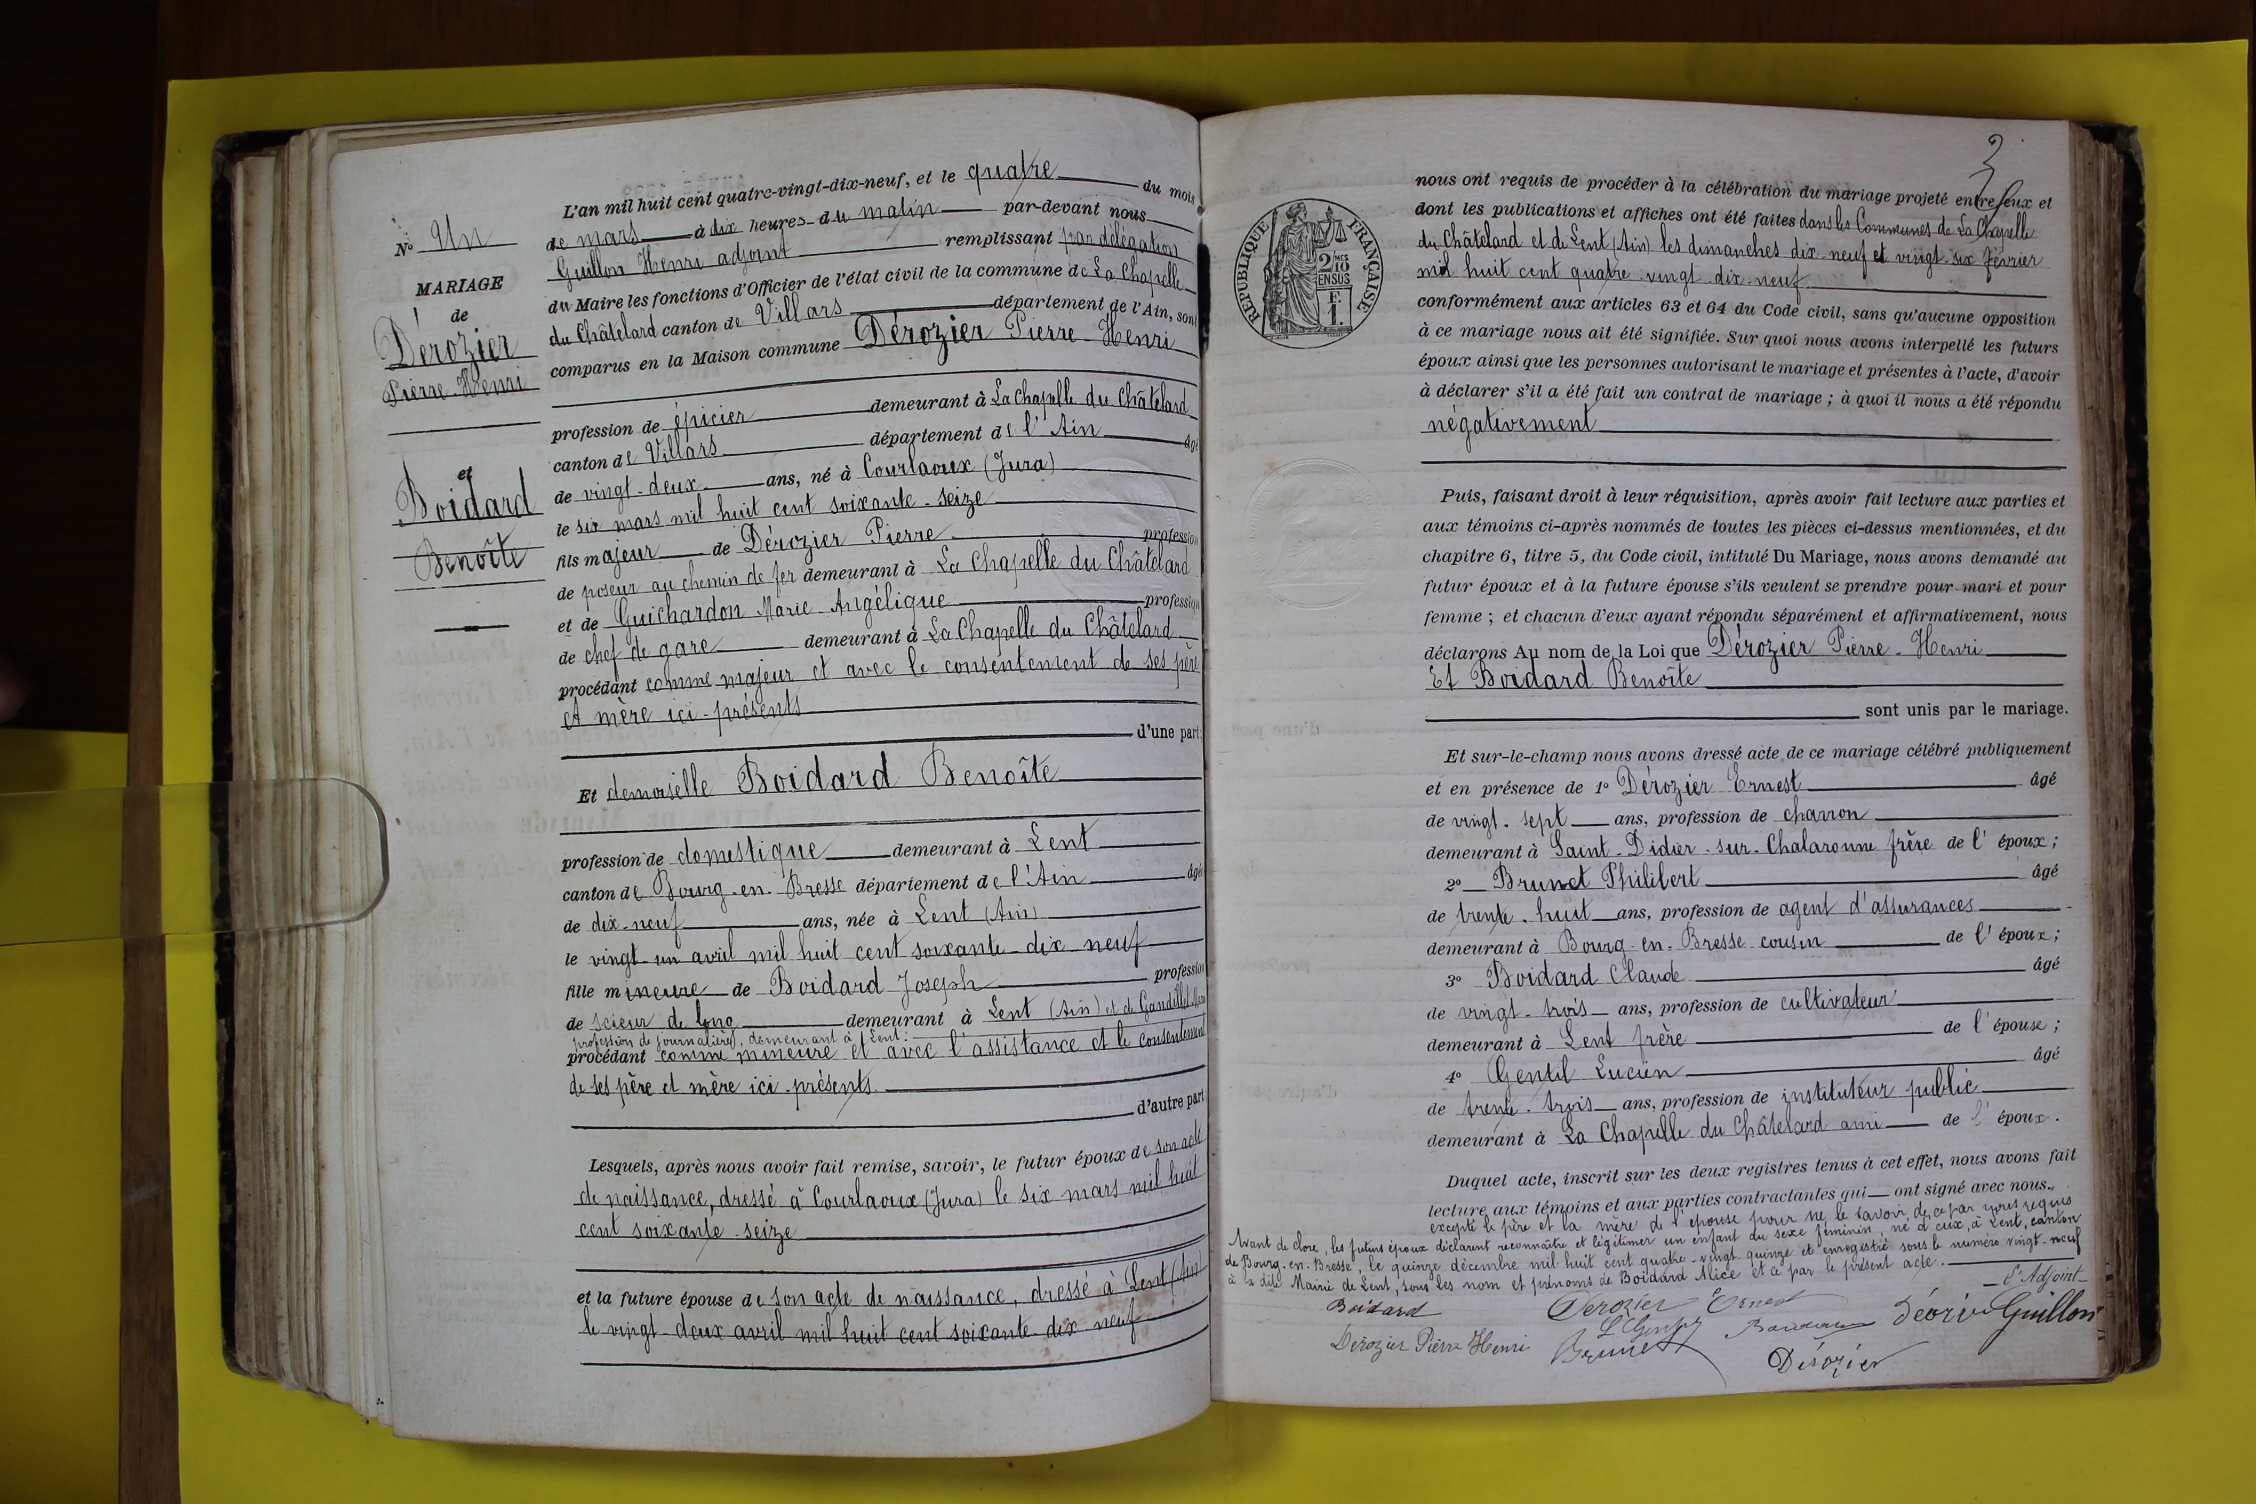 N° Un
MARIAGE
de
Dérozier
Pierre-Henri
et
Boidard
Benoîte
L'an mil huit cent quatre-vingt-dix-neuf, et le quatre du mois
de mars à dix heures du matin par-devant nous
Guillon Henri adjoint remplissant par délégation
du Maire les fonctions d'Officier de l'état civil de la commune de La Chapelle
du Châtelard canton de Villars département de l'Ain, sont
comparus en la Maison commune Dérozier Pierre-Henri
profession de épicier demeurant à La Chapelle du Châtelard
canton de Villars département de l'Ain âgé
de vingt-deux ans, né à Courlaoux (Jura)
le six mars mil huit cent soixante-seize
fils majeur de Dérozier Pierre profession
de poseur au chemin de fer demeurant à La Chapelle du Châtelard
et de Guichardon Marie-Angélique profession
de chef de gare demeurant à La Chapelle du Châtelard
procédant comme majeur et avec le consentement de ses père
et mère ici-présents
d'une part.
Et demoiselle Boidard Benoîte
profession de domestique demeurant à Lent
canton de Bourg-en-Bresse département de l'Ain âgé
de dix-neuf ans, née à Lent (Ain)
le vingt-un avril mil huit cent soixante-dix neuf
fille mineure de Boidard Joseph profession
de scieur de long demeurant à Lent (Ain) et de
profession de journalière, demeurant à Lent.
procédant comme mineure et avec l'assistance et le consentement
de ses père et mère ici-présents
d'autre part
Lesquels, après nous avoir fait remise, savoir, le futur époux de son acte
de naissance, dressé à Courlaoux (Jura) le six mars mil huit
cent soixante-seize
et la future épouse de son acte de naissance, dressé à Lent (Ain)
le vingt-deux avril mil huit cent soixante-dix neuf
3
RÉPUBLIQUE FRANÇAISE
2/10
EN SUS
F.
1.
nous ont requis de procéder à la célébration du mariage projeté entre eux et
dont les publications et affiches ont été faites dans les Communes de La Chapelle
du Châtelard et de Lent (Ain) les dimanches dix-neuf et vingt-six février
mil huit cent quatre-vingt-dix-neuf
conformément aux articles 63 et 64 du Code civil, sans qu'aucune opposition
à ce mariage nous ait été signifiée. Sur quoi nous avons interpellé les futurs
époux ainsi que les personnes autorisant le mariage et présentes à l'acte, d'avoir
à déclarer s'il a été fait un contrat de mariage ; à quoi il nous a été répondu
négativement
Puis, faisant droit à leur réquisition, après avoir fait lecture aux parties et
aux témoins ci-après nommés de toutes les pièces ci-dessus mentionnées, et du
chapitre 6, titre 5, du Code civil, intitulé Du Mariage, nous avons demandé au
futur époux et à la future épouse s'ils veulent se prendre pour mari et pour
femme ; et chacun d'eux ayant répondu séparément et affirmativement, nous
déclarons Au nom de la Loi que Dérozier Pierre-Henri
Et Boidard Benoîte
sont unis par le mariage.
Et sur-le-champ nous avons dressé acte de ce mariage célébré publiquement
et en présence de 1° Dérozier Ernest âgé
de vingt-sept ans, profession de charron
demeurant à Saint-Didier-sur-Chalaronne frère de l'époux ;
2° Brunet Philibert âgé
de trente-huit ans, profession de agent d'assurances
demeurant à Bourg-en-Bresse cousin de l'époux ;
3° Boidard Claude âgé
de vingt-trois ans, profession de cultivateur
demeurant à Lent frère de l'épouse ;
4° Gentil Lucien âgé
de trente-trois ans, profession de instituteur public
demeurant à La Chapelle du Châtelard ami de l'époux.
Duquel acte, inscrit sur les deux registres tenus à cet effet, nous avons fait
lecture aux témoins et aux parties contractantes qui ont signé avec nous.,
excepté le père et la mère de l'épouse pour ne le savoir de ce par nous requis
Avant de clore, les futurs époux déclarent reconnaître et légitimer un enfant du sexe féminin, né d'eux, à Lent, canton
de Bourg-en-Bresse, le quinze décembre mil huit cent quatre-vingt-quinze et enregistré sous le numéro vingt-neuf
à la dite Mairie de Lent, sous les nom et prénoms de Boidard Alice et ce par le présent acte.
L'Adjoint
Boidard Dérozier Ernest
Guillon
Dérozier Pierre Henri Brunet
Dérozier